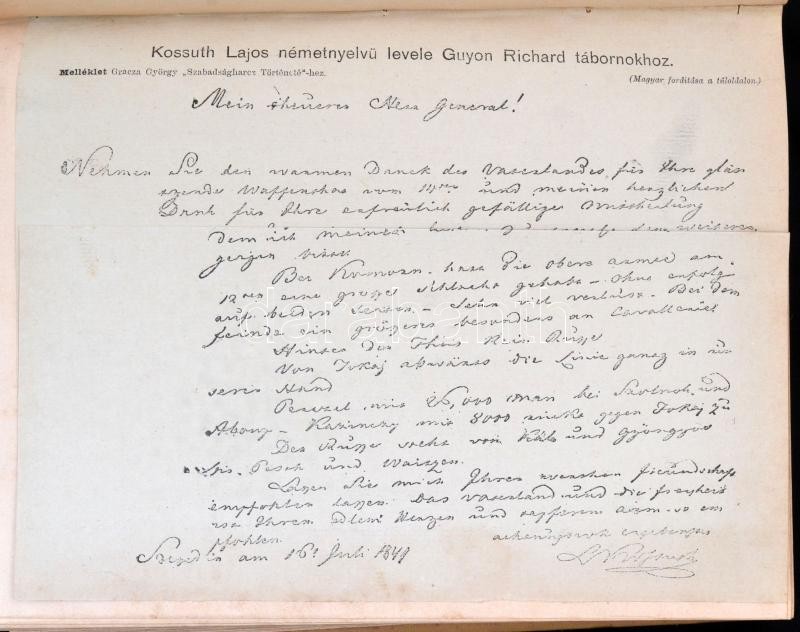 Kossuth Lajos németnyelvü levele Guyon Richard tábornokhoz.
Melléklet Gracza György „Szabadságharcz Története"-hez.
(Magyar fordítása a túloldalon.)
Mein theuerer Herr General!
Nehmen Sie den warmen Danck des Vaterlandes, für Ihre glän
zende Waffenthat vom 14ten und meinen herzlichen
Dank für Ihre erfreulich gefällige Mittheilung
dem ich meinen
Bei Komorn hat die obere armee am
12ten eine große Schlacht gehabt – ohne erfolg
auf beiden seiten – sehr viel verlust. Bei dem
feinde ein größerer besonders an Cavallerie
Hinter der Theis kein Russe
Von Tokaj abwärts die Linie ganz in un
serer Hand
Perczel mit 26,000 man bei Szolnok und
Abony – Kazinczy mit 8000 rückt gegen Tokaj zu
Der Russe steht von Kál und Gyöngyös
bis Pesth und Waitzen.
Lassen Sie mich Ihrer werthen freundschaft
empfohlen sein. Das Vaterland und die freyheit
Ihrem edlem Herzen und tapferem arm so em
pfohlen.
achtungsvoll ergebenster
Szegedin am 16t Juli 1849
L Kossuth
darabanth